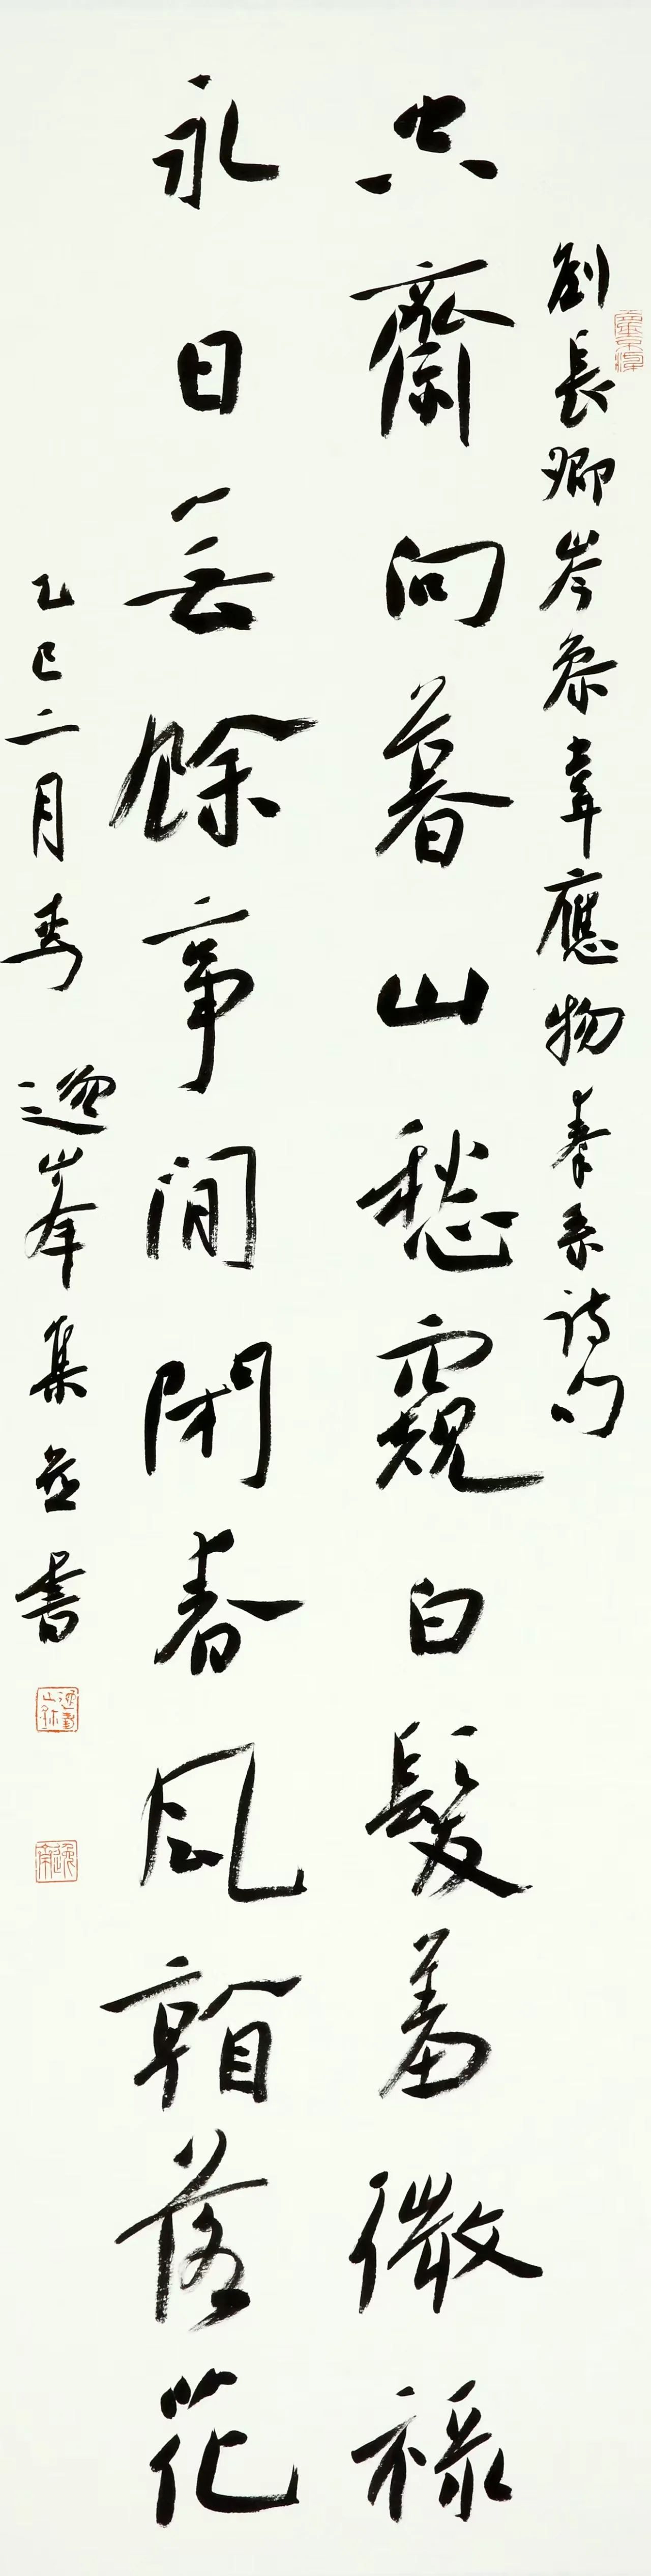 劉長卿岑參韋應物秦系詩句
空齋向暮山愁窺白髮羞微祿
永日無餘事閒閉春風看落花
乙巳二月 逸峯集並書